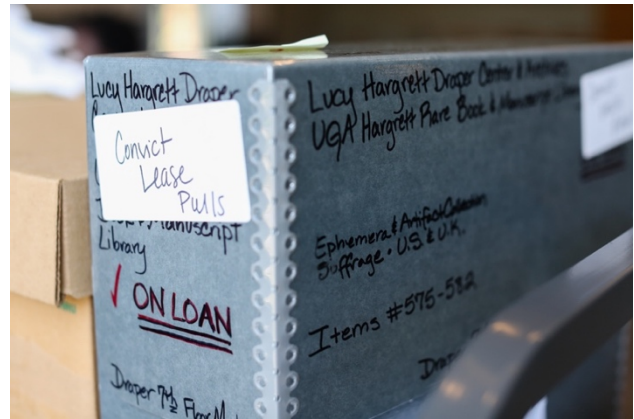 Lucy Hargrett Draper
Convict
Lease
Pulls
Manuscript
Library
✓ ON LOAN
Draper 7th Floor
Lucy Hargrett Draper Center & Archives
UGA Hargrett Rare Book & Manuscript
Ephemera & Artifact Collection
Suffrage · U.S & U.K.
Items #575-582